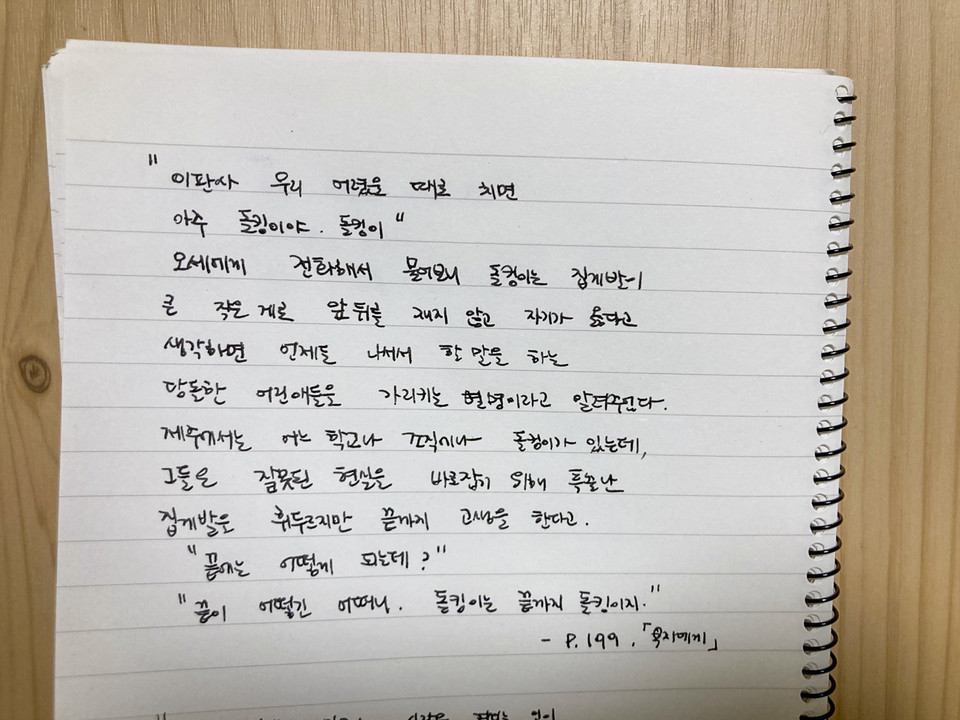 "이판사 우리 어렸을 때로 치면
아주 돌킹이야. 돌킹이"
오세에게 전화해서 물어보니 돌킹이는 집게발이
큰 작은 게로 앞뒤를 재지 않고 자기가 옳다고
생각하면 언제든 나서서 할 말을 하는
당돌한 어린애들을 가리키는 별명이라고 알려주었다.
제주에서는 어느 학교나 조직이나 돌킹이가 있는데,
그들은 잘못된 현실을 바로잡기 위해 툭불난
집게발을 휘두르지만 끝까지 고생을 한다고.
"끝에는 어떻게 되는데?"
"끝이 어떻긴 어떠니. 돌킹이는 끝까지 돌킹이지."
- P. 199. 「복자에게」